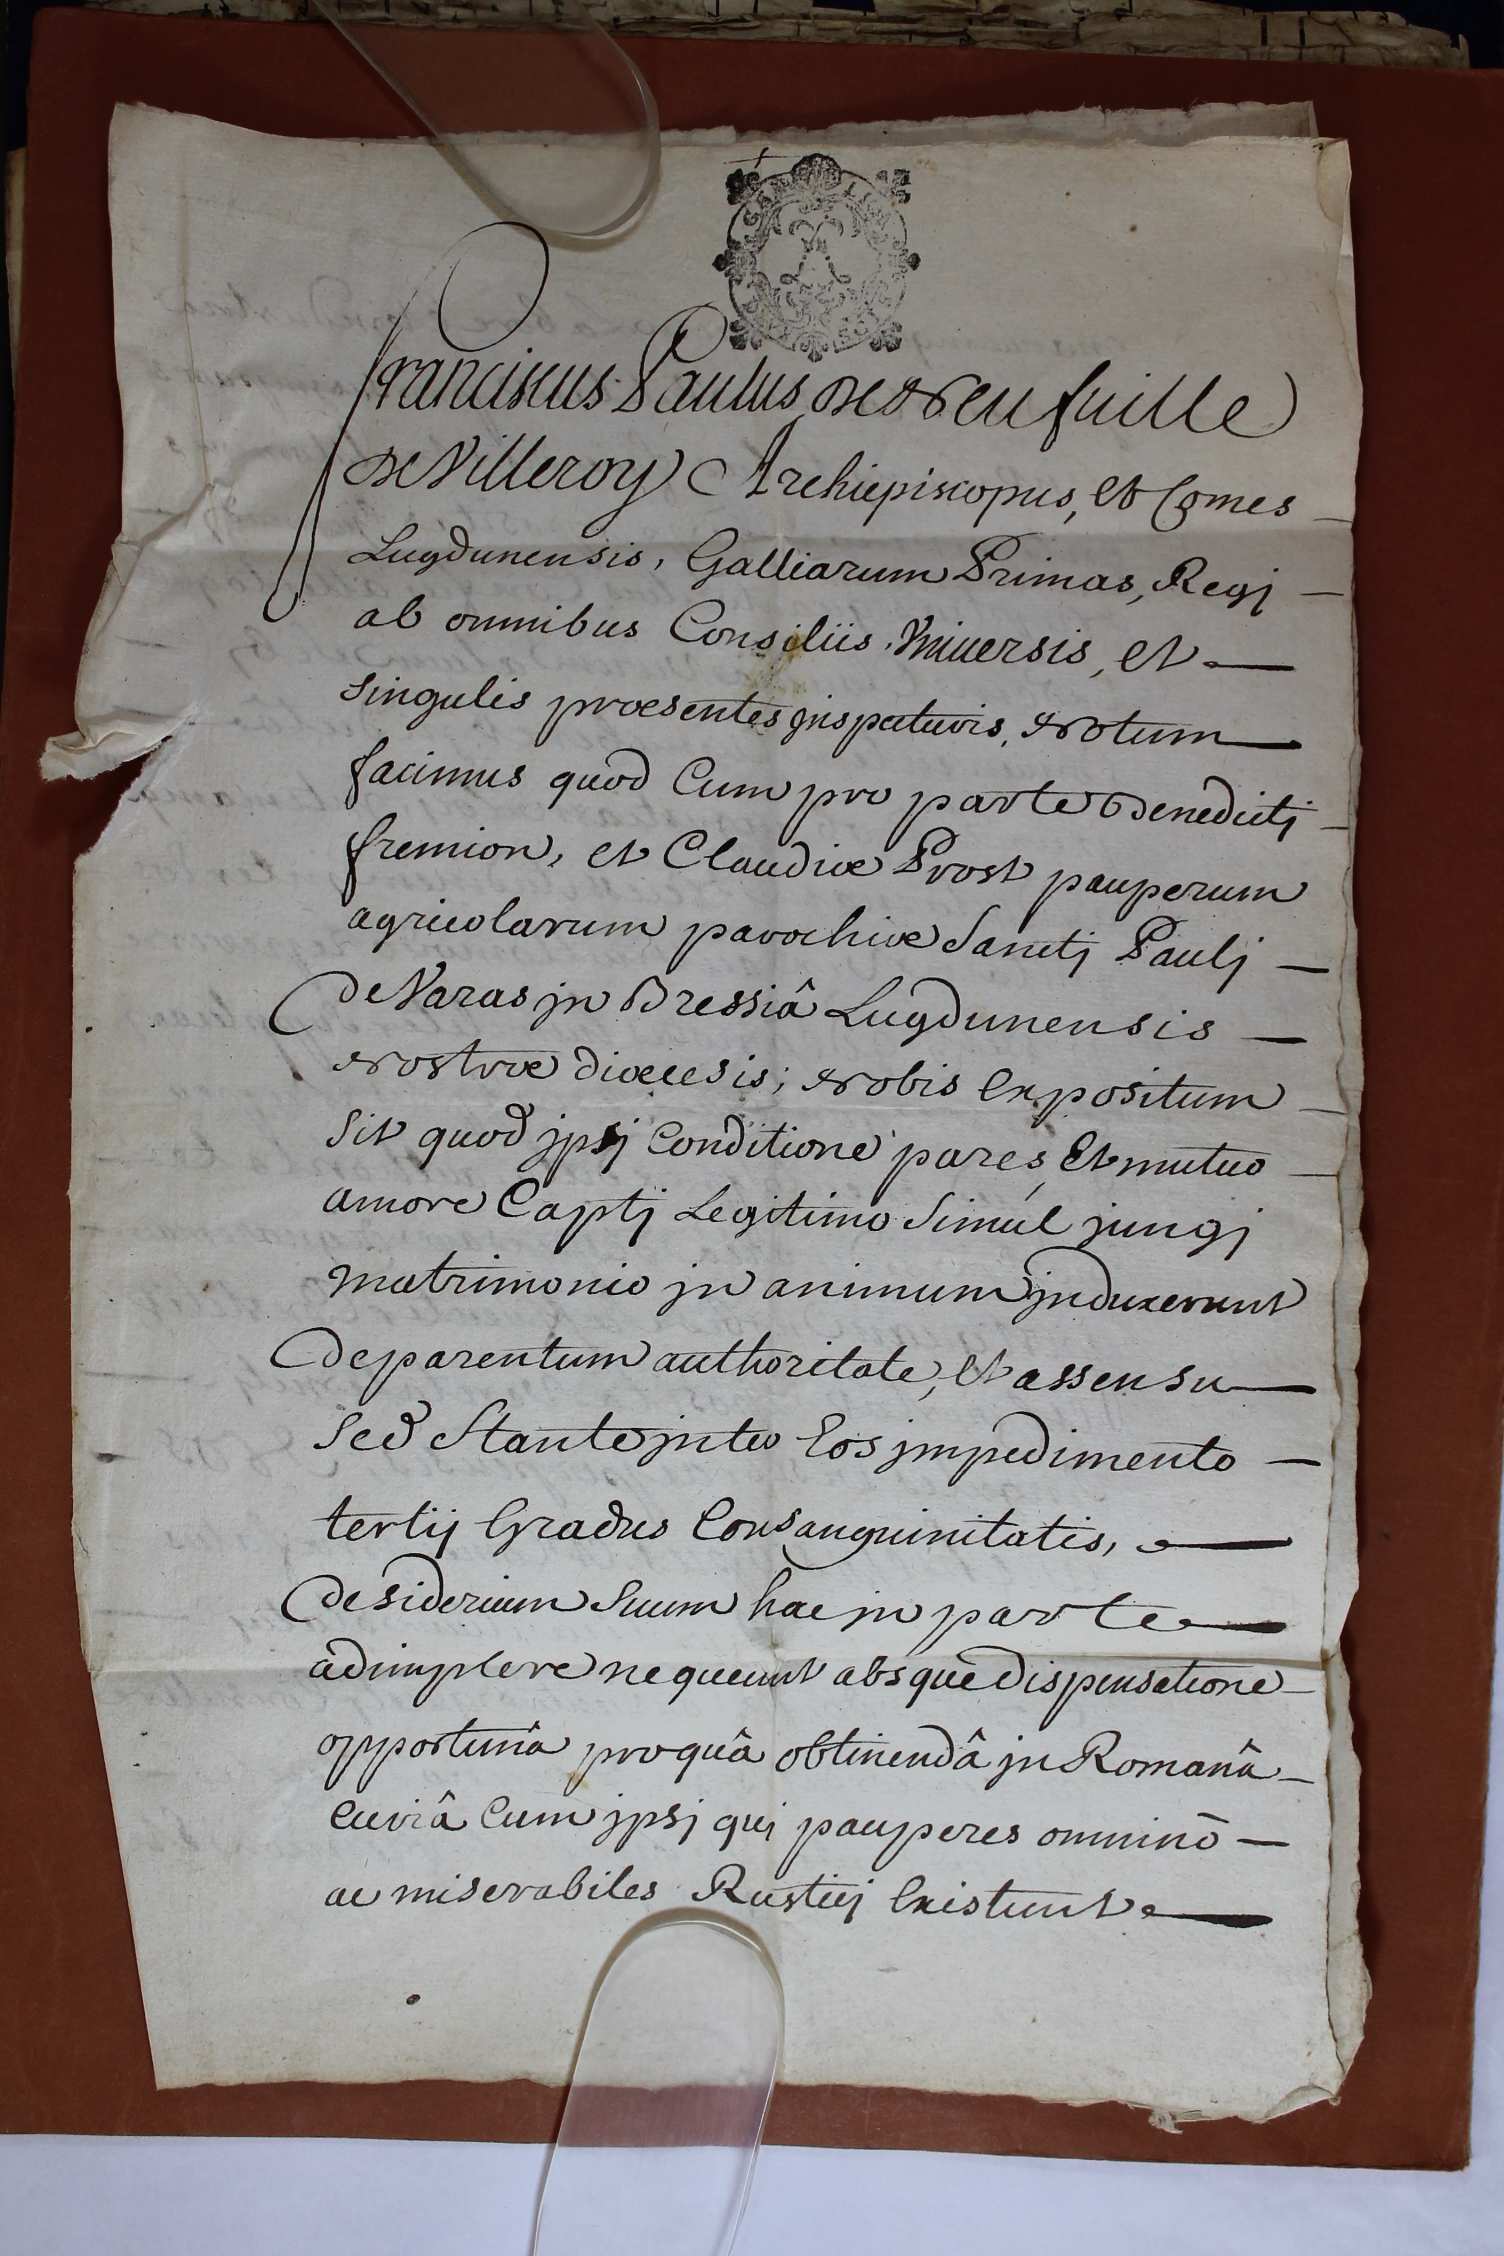 Franciscus Paulus De Neufuille
De Villeroy Archiepiscopus, et Comes
Lugdunensis, Galliarum Primas, Regj
ab omnibus Consiliis. Vniuersis, et
singulis præsentes jnspecturis, Notum
facimus quod Cum pro parte Benedictj
fremion, et Claudiæ Prost pauperum
agricolarum parochiæ Sanctj Paulj
de Varas jn Bressiâ Lugdunensis
Nostræ diœcesis; Nobis expositum
sit quod jpsj Conditione pares, Et mutuo
amore Captj Legitimo Simul jungj
matrimonio jn animum jnduxerunt
de parentum authoritate, et assensu
Sed Stante jnter Eos jmpedimento
tertij Gradus Consanguinitatis,
desiderium Suum hac jn parte
adimplere nequeunt absque dispensatione
opportunâ pro quâ obtinendâ jn Romanâ
Curiâ Cum jpsj quj pauperes omninò
ac miserabiles Rusticj Existunt